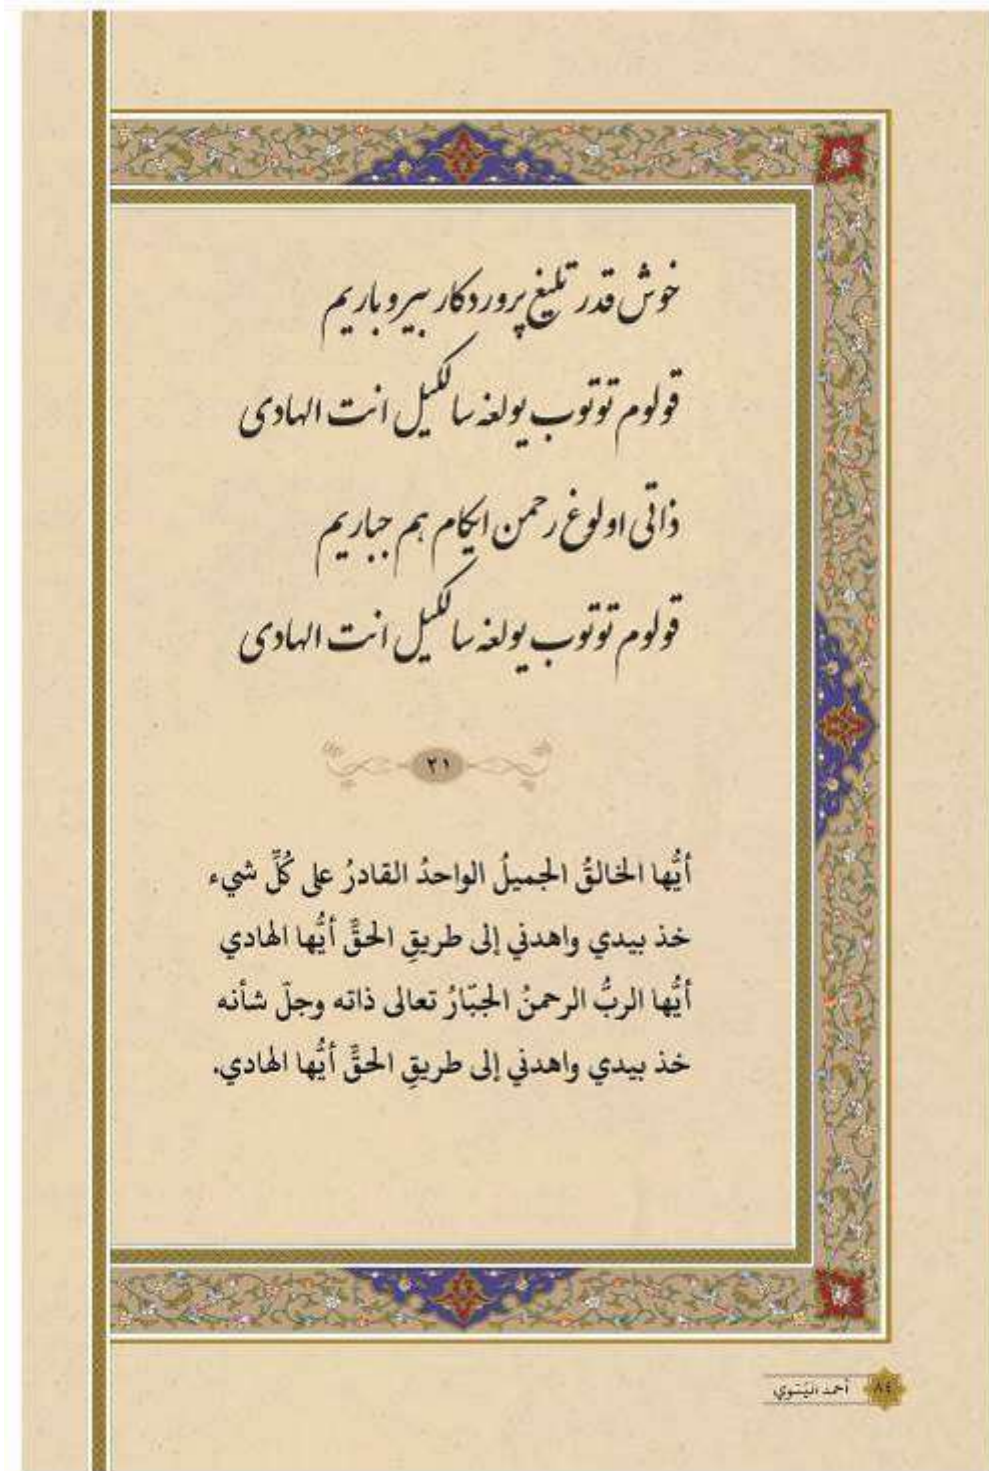 خوش قدرتليغ پروردكار بيرو باريم
قولوم توتوب يولغه سالگيل انت الهادى
ذاتى اولوغ رحمن ايگام هم جباريم
قولوم توتوب يولغه سالگيل انت الهادى
٢١
أيُّها الخالقُ الجميلُ الواحدُ القادرُ على كُلِّ شيء
خذ بيدي واهدني إلى طريقِ الحقِّ أيُّها الهادي
أيُّها الربُّ الرحمنُ الجبّارُ تعالى ذاته وجلّ شأنه
خذ بيدي واهدني إلى طريقِ الحقِّ أيُّها الهادي.
٨٤ أحمد اليَسَوي